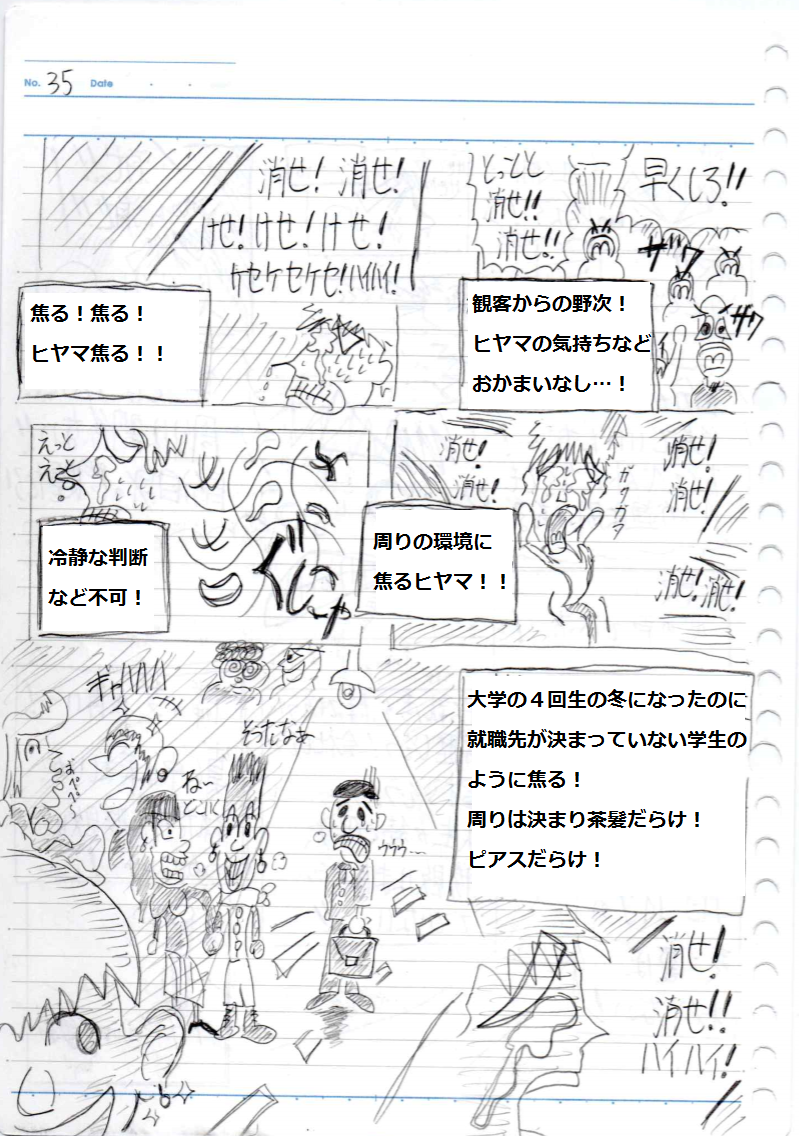 No. 35 Date
早くしろ!!
とっとと
消せ!!
消せ!!
ザワ
ザワ
観客からの野次！
ヒヤマの気持ちなど
おかまいなし…！
消せ! 消せ!
けせ! けせ! けせ!
ケセケセケセ!ハイハイ!
焦る！焦る！
ヒヤマ焦る！！
消せ!
消せ!
消せ!
消せ!
ガクガク
消せ!消せ!
周りの環境に
焦るヒヤマ！！
えっと
えっと
ぐしゃ
冷静な判断
など不可！
大学の４回生の冬になったのに
就職先が決まっていない学生の
ように焦る！
周りは決まり茶髪だらけ！
ピアスだらけ！
ギャハハハ
そったなぁ
ね～
どこに
ウウウ…
消せ!
消せ!!
ハイハイ!